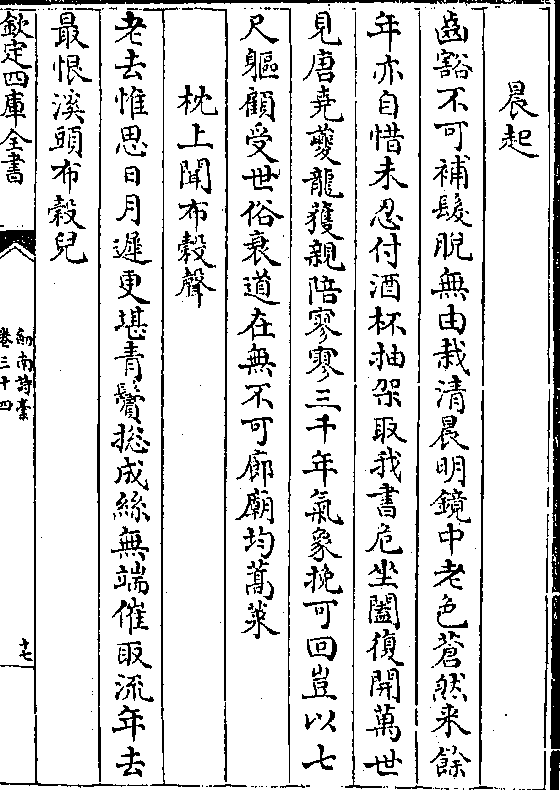 晨起
齒豁不可補髮脫無由栽清晨明鏡中老色蒼然来餘
年亦自惜未忍付酒杯抽架取我書危坐闔復開萬世
見唐堯夔龍獲親陪寥寥三千年氣象挽可回豈以七
尺軀顧受世俗衰道在無不可廊廟均蒿莱
枕上聞布穀聲
老去惟思日月遲更堪青鬢捴成絲無端催取流年去
最恨溪頭布穀兒
欽定四庫全書
劍南詩稾
卷三十四
十七